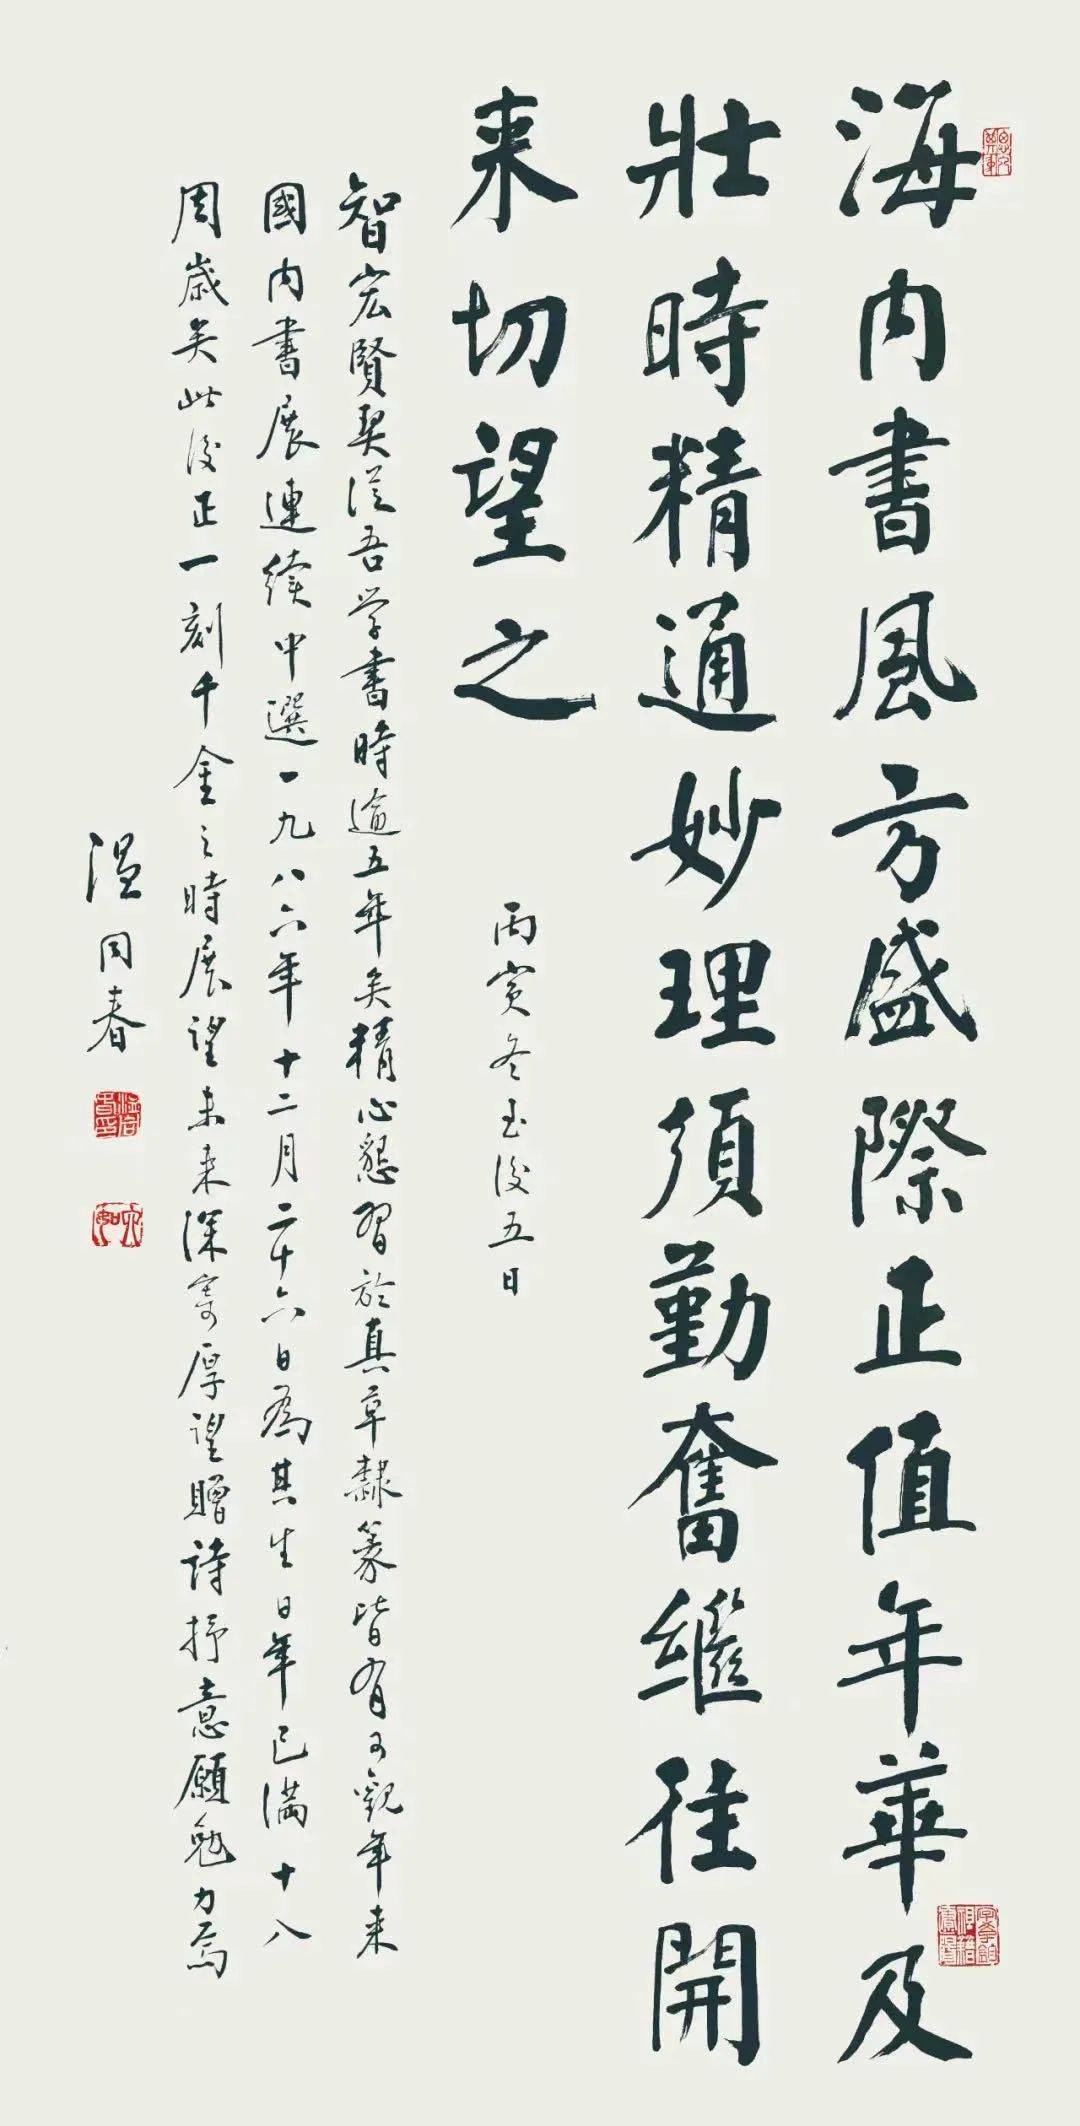 海内書風方盛際正值年華及
壯時精通妙理須勤奮繼往開
来切望之
丙寅冬至後五日
智宏賢契從吾学書時逾五年矣精心懇習於真草隸篆皆有可觀年来
國内書展連續中選一九八六年十二月二十六日為其生日年已滿十八
周歲矣此後正一刻千金之時展望未来深寄厚望贈詩抒意願勉力焉
溫同春